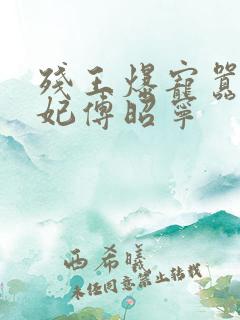 残王爆宠嚣
妃傅昭宁
西希曦
未经同意禁止转载